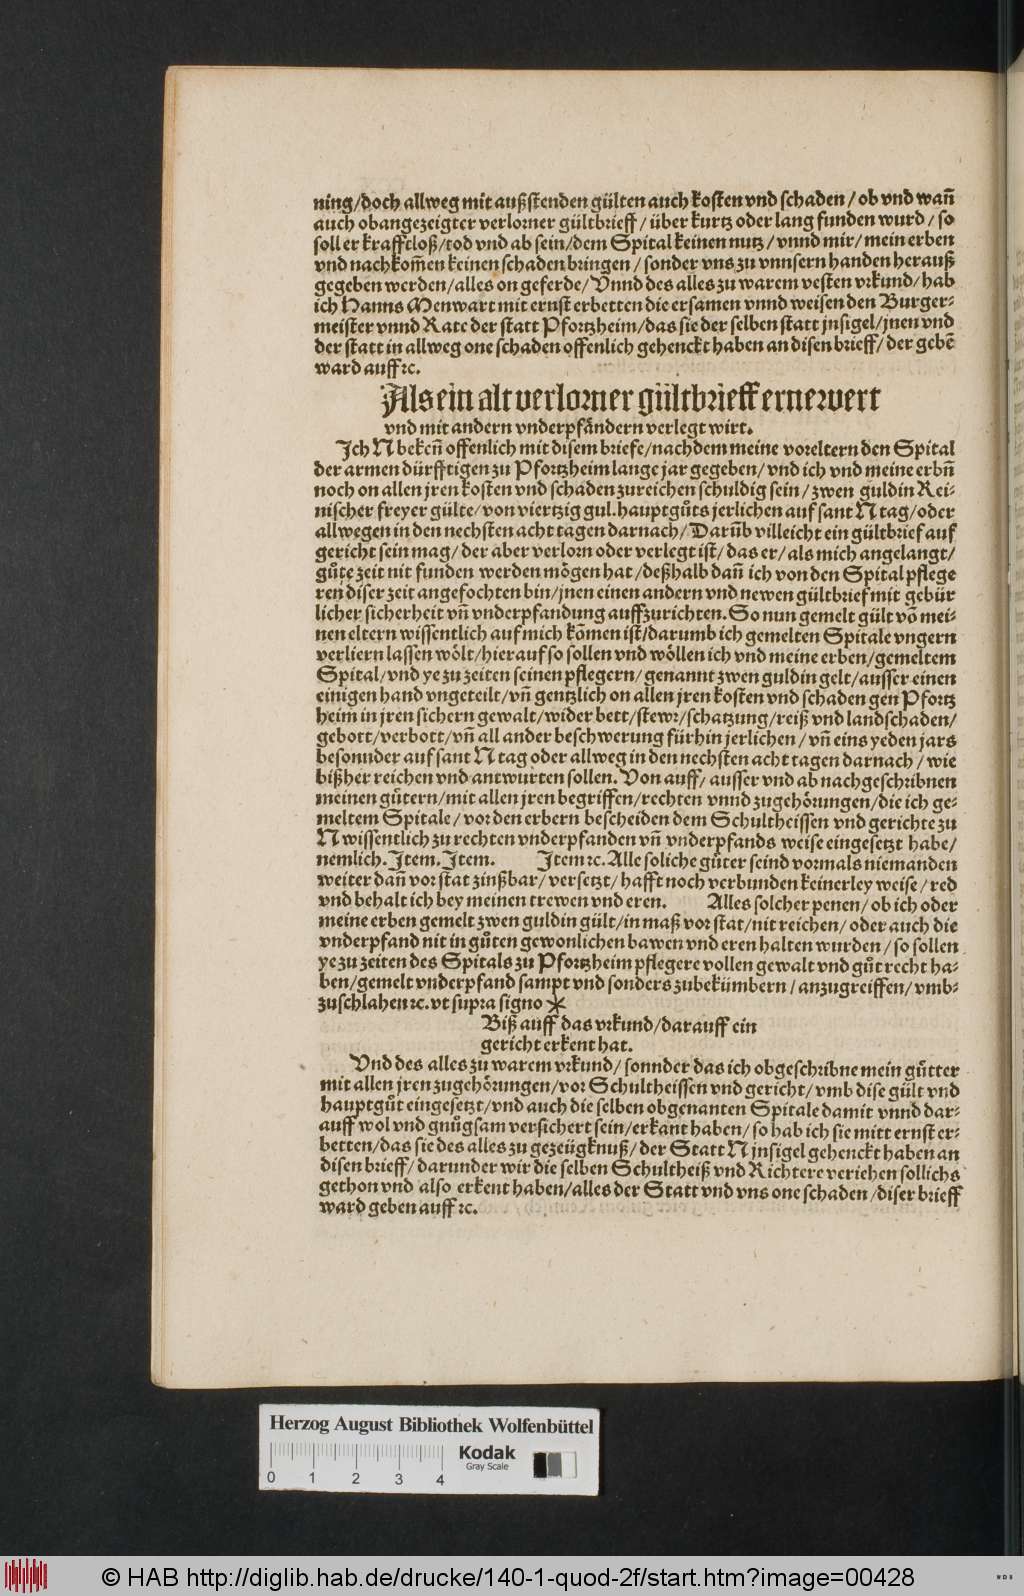 ning/doch allweg mit außstenden gülten auch kosten vnd schaden / ob vnd wañ
auch obangezeigter verlorner gültbrieff / über kurtz oder lang funden wurd / so
soll er krafftloß/tod vnd ab sein/dem Spital keinen nutz / vnnd mir/mein erben
vnd nachkom̃en keinen schaden bringen / sonder vns zu vnnsern handen herauß
gegeben werden/alles on geferde/Vnnd des alles zu warem vesten vrkund/hab
ich Hanns Menwart mit ernst erbetten die ersamen vnnd weisen den Burger-
meister vnnd Rate der statt Pfortzheim/das sie der selben statt jnsigel/jnen vnd
der statt in allweg one schaden offenlich gehenckt haben an disen brieff/ der gebẽ
ward auff ꝛc.
Als ein alt verlorner gültbrieff ernewert
vnd mit andern vnderpfändern verlegt wirt.
Ich N bekeñ offenlich mit disem briefe/nachdem meine voreltern den Spital
der armen dürfftigen zu Pfortzheim lange jar gegeben/ vnd ich vnd meine erbñ
noch on allen jren kosten vnd schaden zureichen schuldig sein / zwen guldin Rei-
nischer freyer gülte/ von viertzig gul. hauptgůts jerlichen auf sant N tag/oder
allwegen in den nechsten acht tagen darnach/ Darũb villeicht ein gültbrief auf
gericht sein mag/ der aber verlorn oder verlegt ist/ das er/ als mich angelangt/
gůte zeit nit funden werden mögen hat /deßhalb dañ ich von den Spital pflege
ren diser zeit angefochten bin/jnen einen andern vnd newen gültbrief mit gebür
licher sicherheit vñ vnderpfandung auffzurichten. So nun gemelt gült võ mei-
nen eltern wissentlich auf mich kõmen ist/darumb ich gemelten Spitale vngern
verliern lassen wölt/hierauf so sollen vnd wöllen ich vnd meine erben/gemeltem
Spital/vnd ye zu zeiten seinen pflegern/ genannt zwen guldin gelt/ausser einen
einigen hand vngeteilt/vñ gentzlich on allen jren kosten vnd schaden gen Pfortz
heim in jren sichern gewalt/wider bett/stewr/schatzung/reiß vnd landschaden/
gebott/verbott/vñ all ander beschwerung fürhin jerlichen / vñ eins yeden jars
besonnder auf sant N tag oder allweg in den nechsten acht tagen darnach / wie
bißher reichen vnd antwurten sollen. Von auff/ ausser vnd ab nachgeschribnen
meinen gůtern/mit allen jren begriffen/rechten vnnd zugehörungen/die ich ge-
meltem Spitale / vor den erbern bescheiden dem Schultheissen vnd gerichte zu
N wissentlich zu rechten vnderpfanden vñ vnderpfands weise eingesetzt habe/
nemlich. Item. Item. Item ꝛc. Alle soliche gůter seind vormals niemanden
weiter dañ vor stat zinßbar/ versetzt/ hafft noch verbunden keinerley weise / red
vnd behalt ich bey meinen trewen vnd eren. Alles solcher penen/ ob ich oder
meine erben gemelt zwen guldin gült/in maß vor stat/nit reichen/ oder auch die
vnderpfand nit in gůten gewonlichen bawen vnd eren halten wurden / so sollen
ye zu zeiten des Spitals zu Pfortzheim pflegere vollen gewalt vnd gůt recht ha-
ben/gemelt vnderpfand sampt vnd sonders zubekümbern / anzugreiffen/ vmb-
zuschlahen ꝛc. vt supra signo ⁎
Biß auff das vrkund/darauff ein
gericht erkent hat.
Vnd des alles zu warem vrkund/ sonnder das ich obgeschribne mein gůtter
mit allen jren zugehörungen/vor Schultheissen vnd gericht/ vmb dise gült vnd
hauptgůt eingesetzt/vnd auch die selben obgenanten Spitale damit vnnd dar-
auff wol vnd gnůgsam versichert sein/erkant haben/ so hab ich sie mitt ernst er-
betten/das sie des alles zu gezeügknuß/ der Statt N jnsigel gehenckt haben an
disen brieff/ darunder wir die selben Schultheiß vnd Richtere veriehen sollichs
gethon vnd also erkent haben/alles der Statt vnd vns one schaden /diser brieff
ward geben auff ꝛc.
Herzog August Bibliothek Wolfenbüttel
Kodak
Gray Scale
0 1 2 3 4
© HAB http://diglib.hab.de/drucke/140-1-quod-2f/start.htm?image=00428